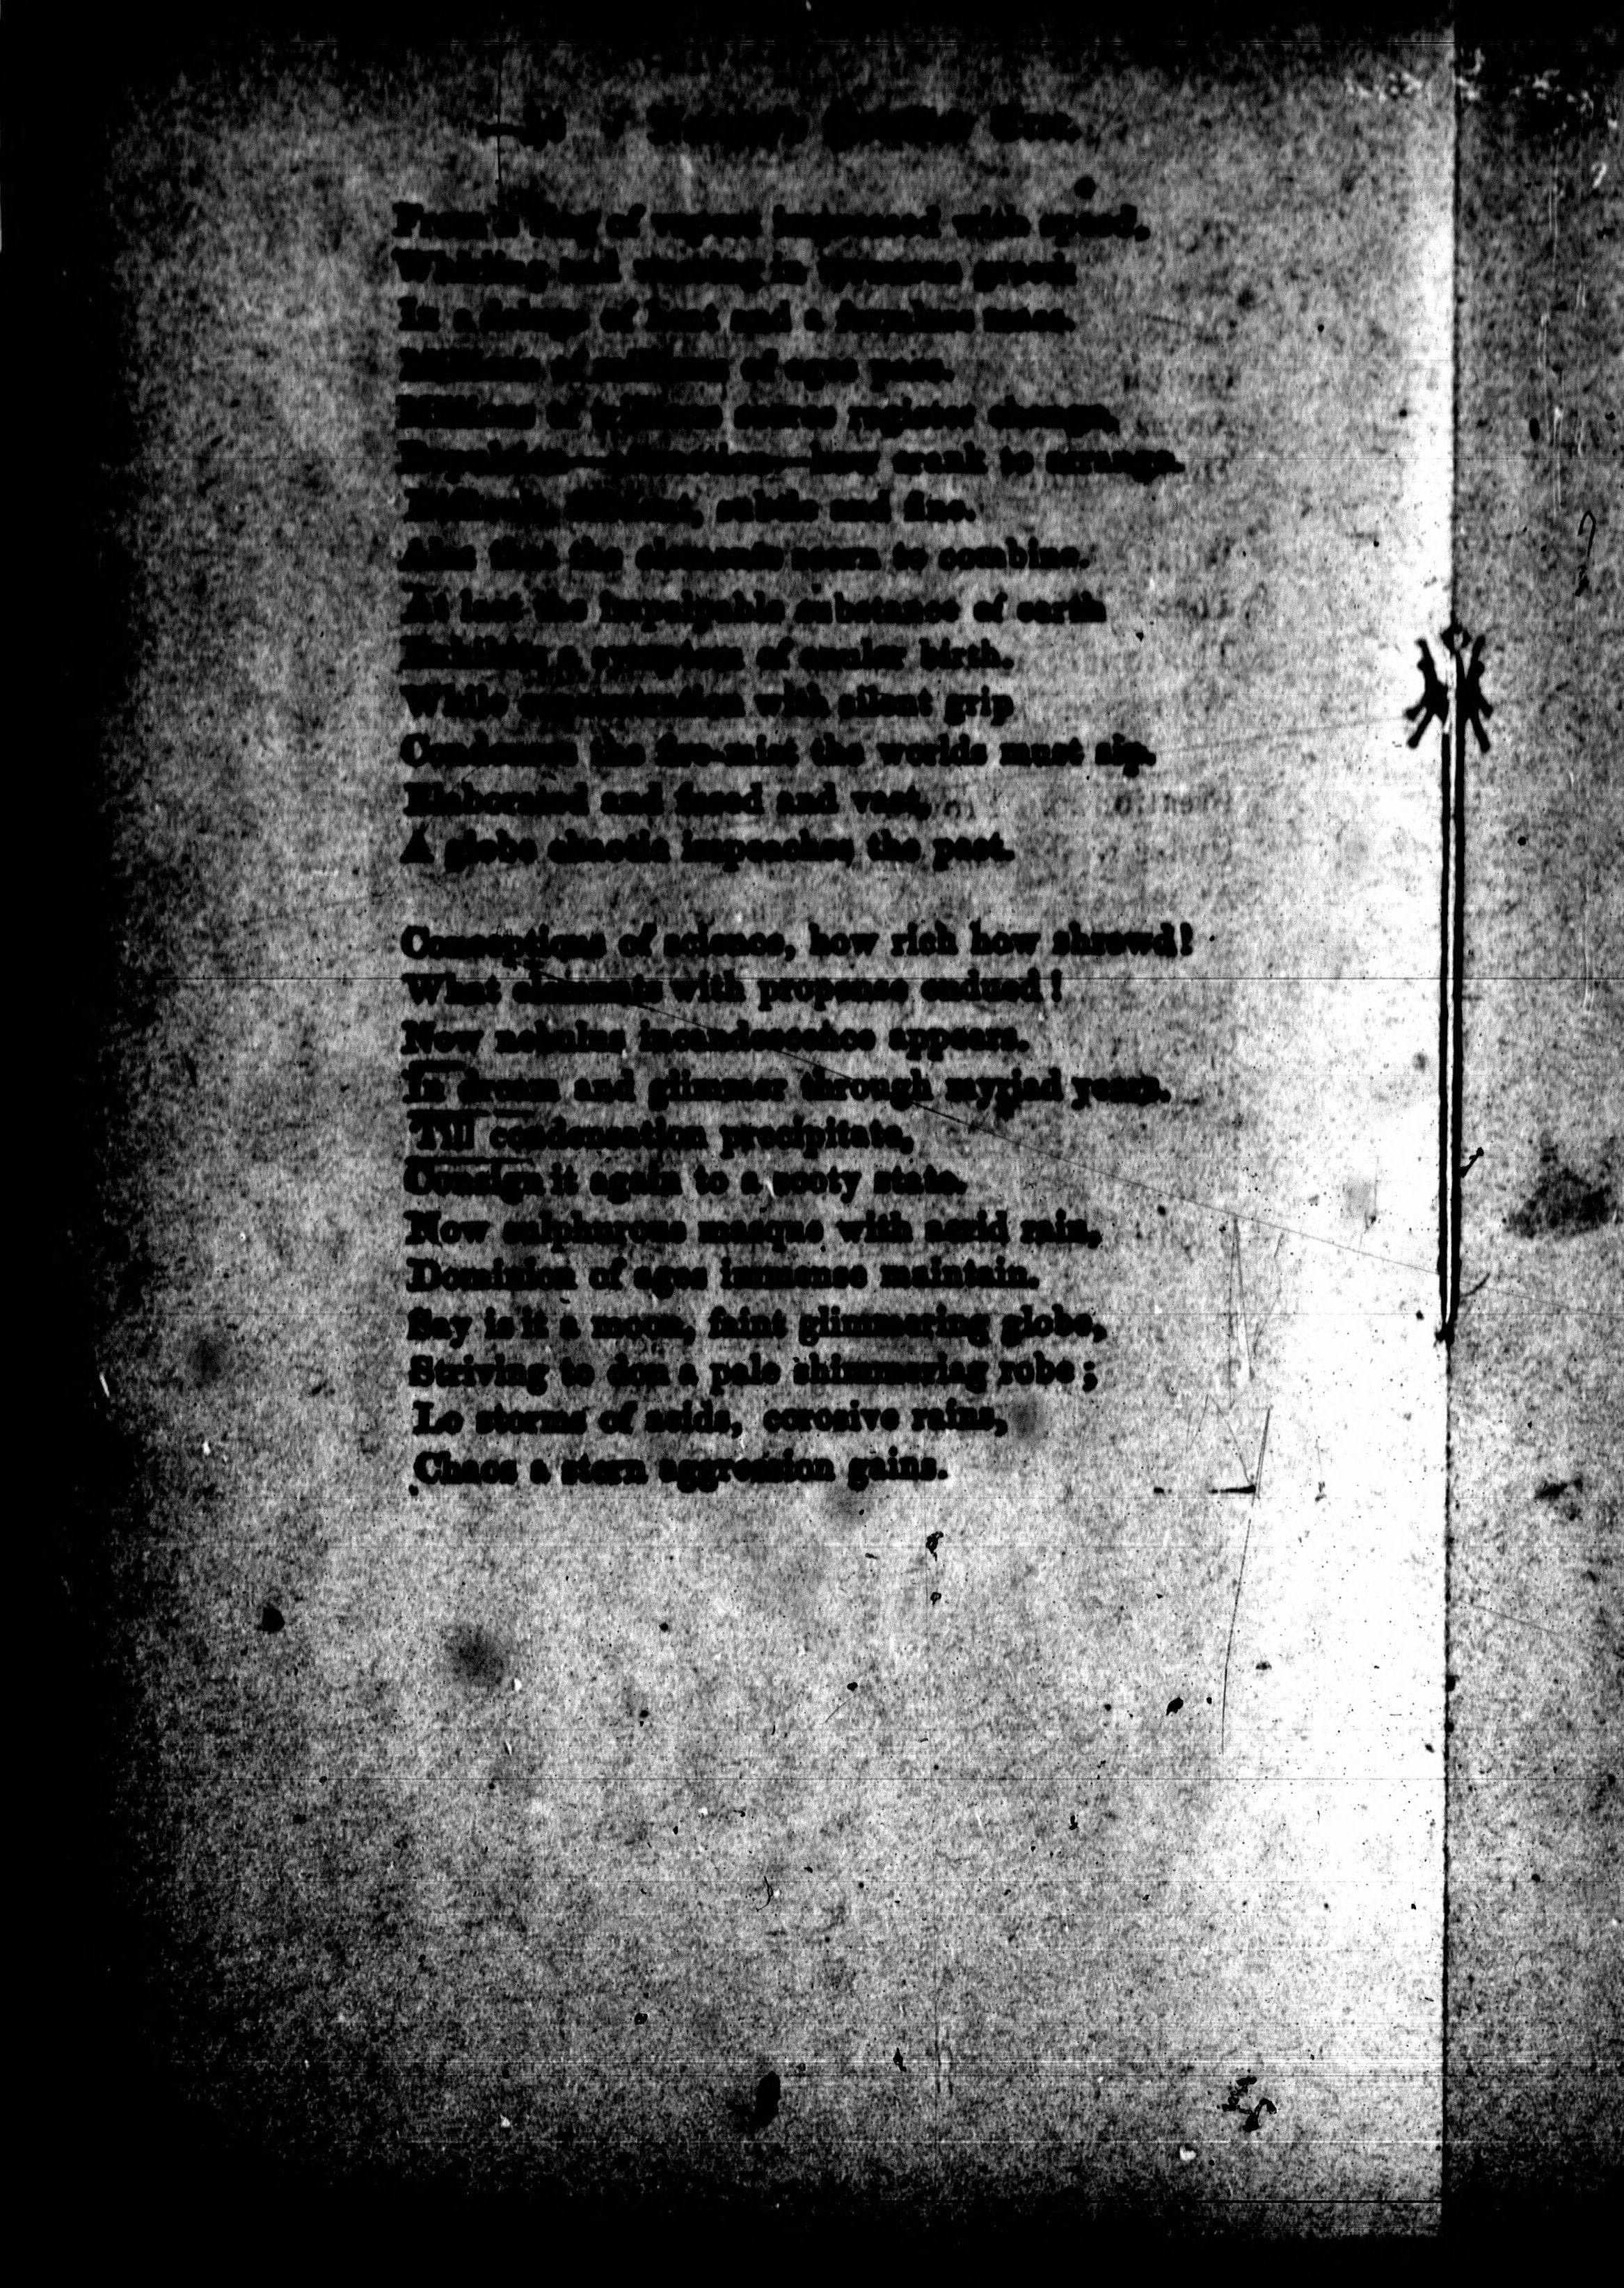 of vapors with speed,
Whirling and in
In a deluge of heat and a
Millions of millions of ages past.
Millions of register change,
how weak to arrange.
subtle and fine.
Alas that the elements scorn to combine.
At last the impalpable substance of earth
Exhibits a symptom of cooler birth.
While concentration with silent grip
Condenses the fire-mist the worlds must sip.
Elaborated and fused and vast,
A globe chaotic impeaches the past.
Conceptions of science, how rich how shrewd!
What elements with propense endued!
Now nebulus incandescence appears.
In dream and glimmer through myriad years.
Till condensation precipitate,
Consign it again to a sooty state.
Now sulphurous masque with acrid rain,
Dominion of ages immense maintain.
Say is it a moon, faint glimmering globe,
Striving to don a pale shimmering robe;
Lo storms of acids, corosive rains,
Chaos a stern aggression gains.